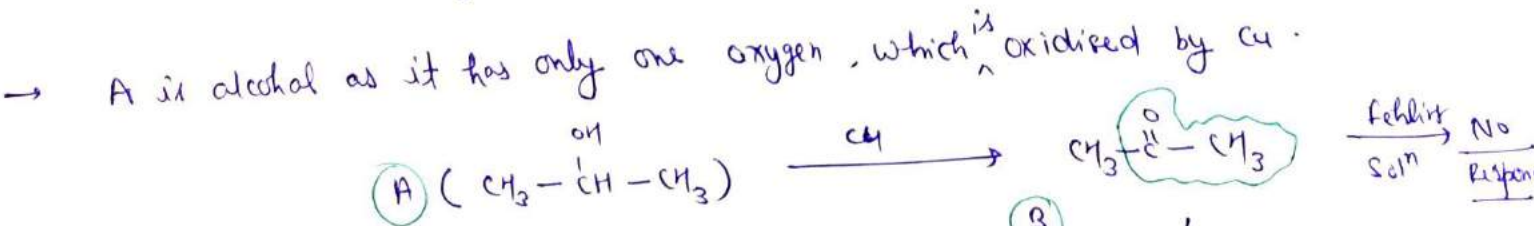 → A is alcohol as it has only one oxygen, which is oxidised by Cu.
OH
A ( CH3 - CH - CH3 ) Cu → CH3 - C - CH3 Fehling Soln → No Respon
O
B